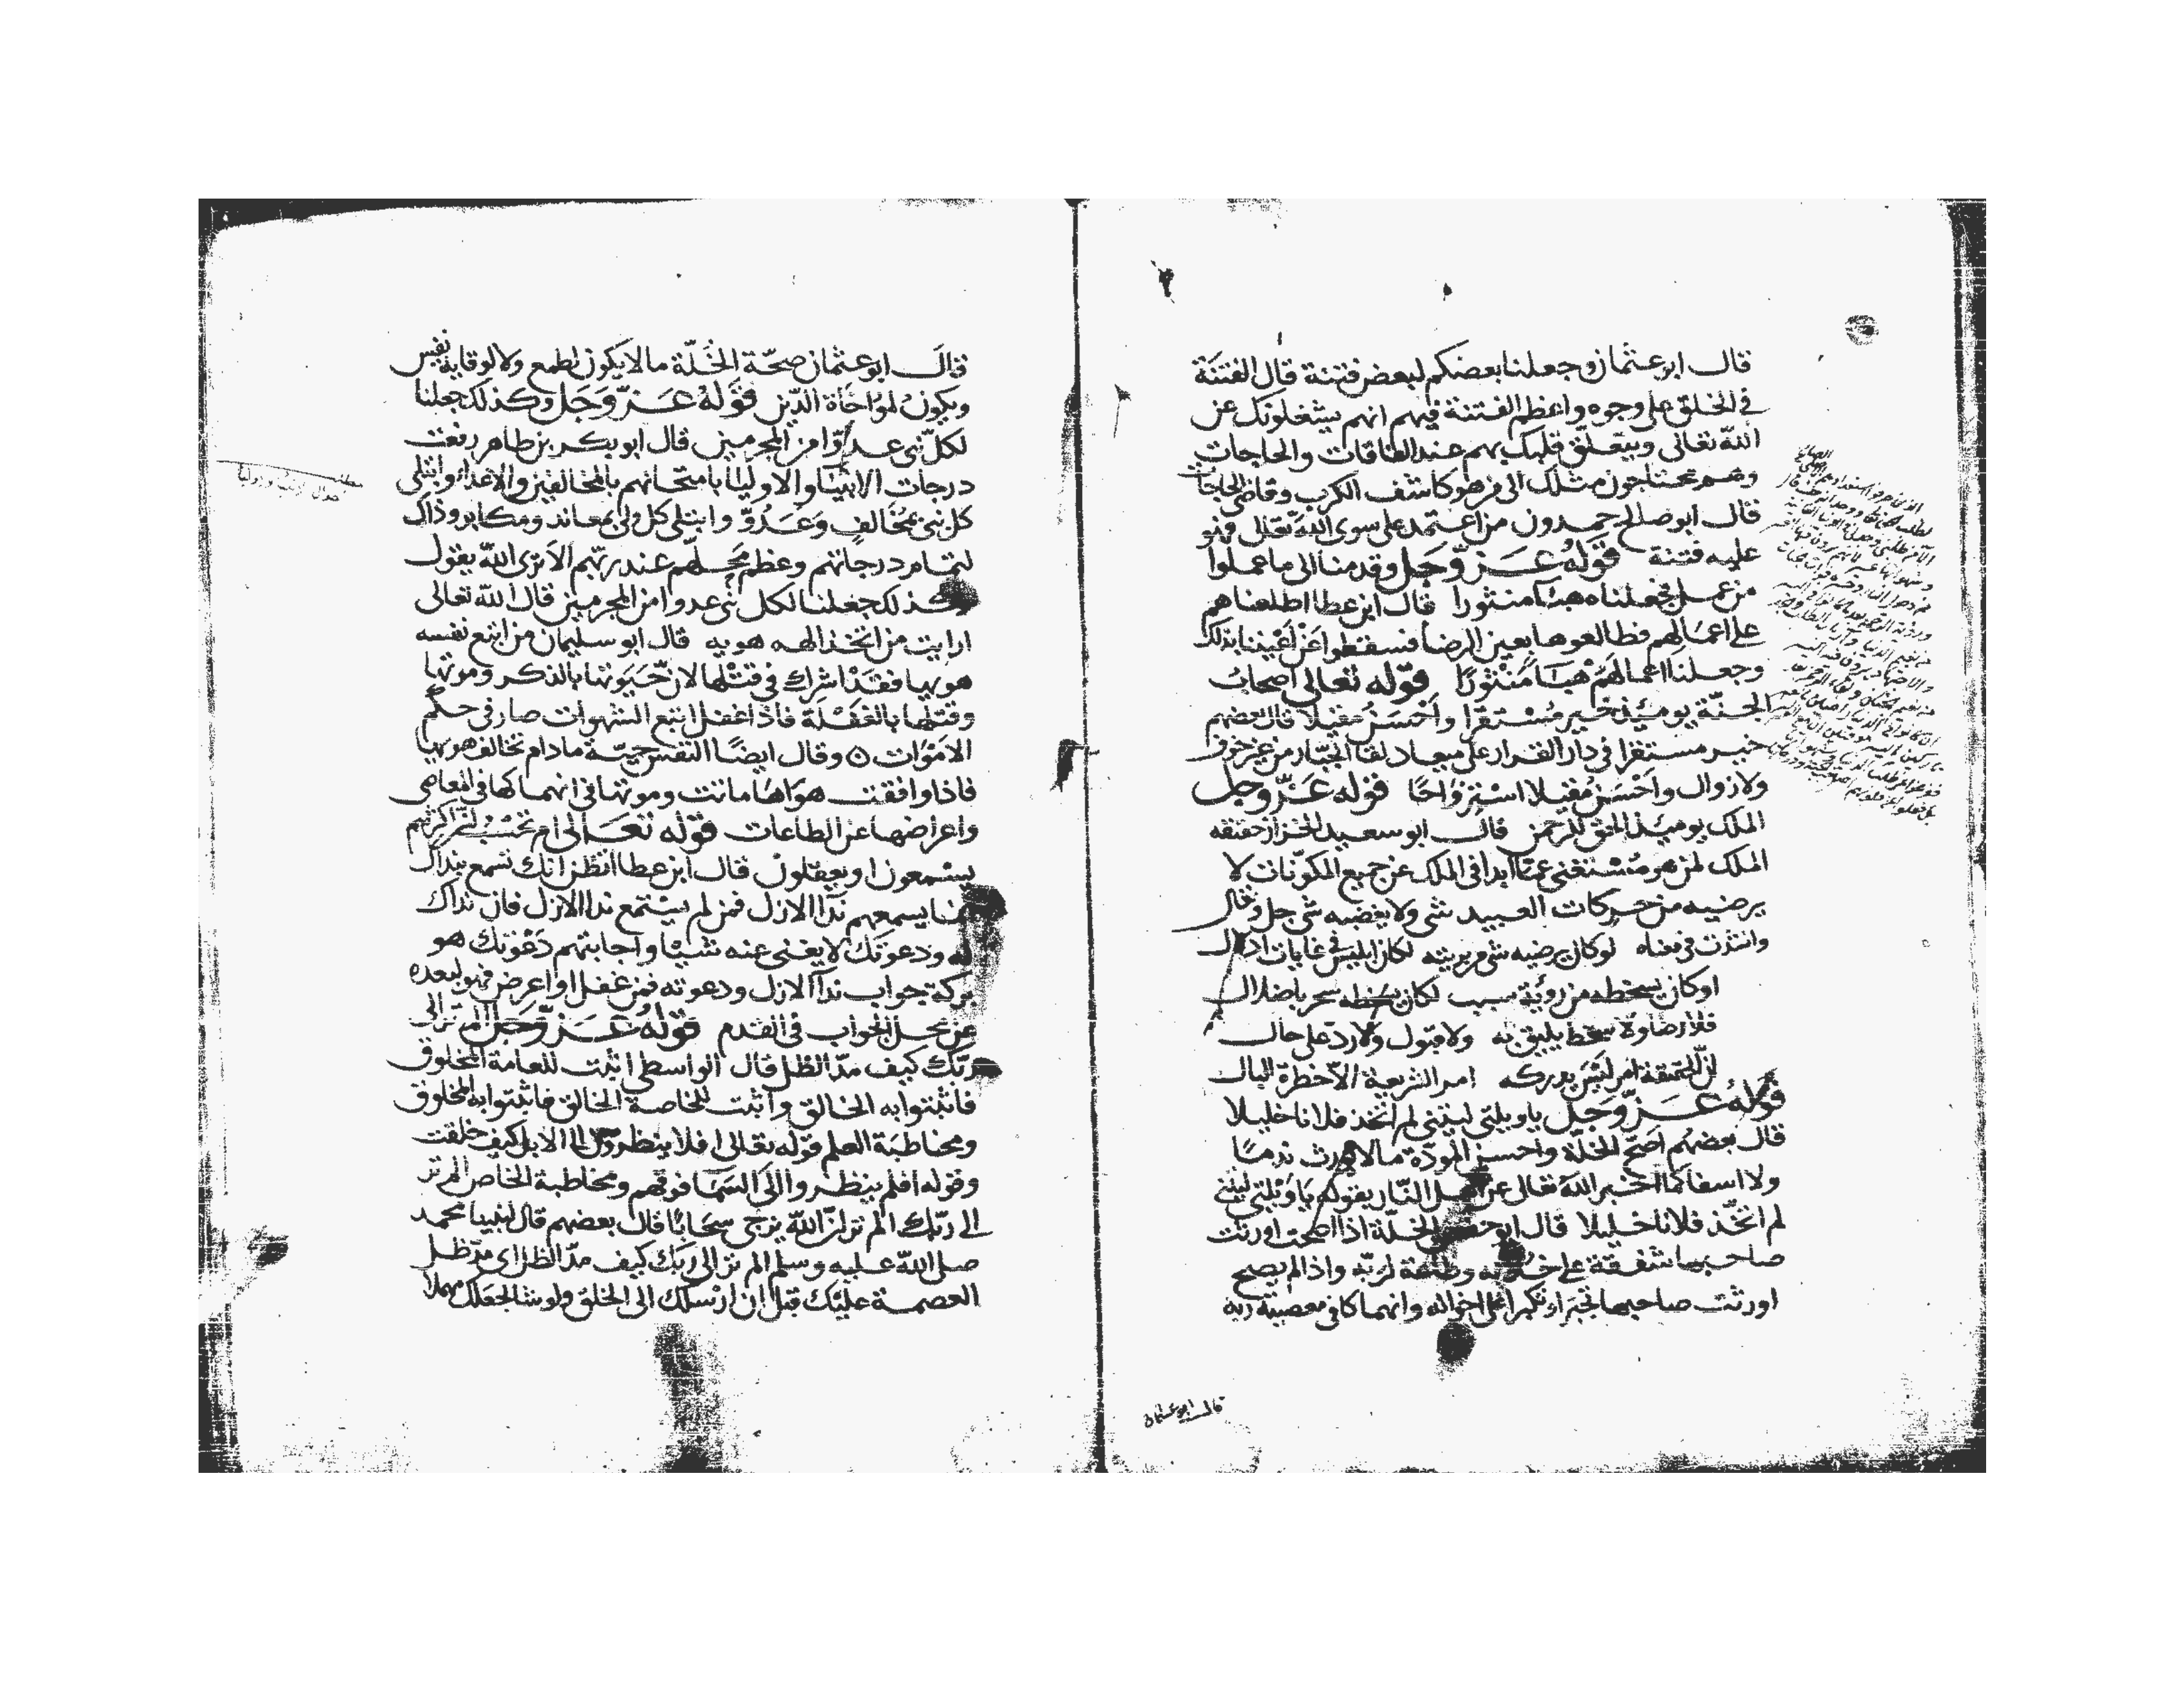 قال ابو عثمان وجعلنا بعضكم لبعض فتنة قال الفتنة
في الخلق على وجوه واعظم الفتنة فيهم انهم يشغلونك عن
الله تعالى ويتعلق قلبك بهم عند الطاقات والحاجات
وهم محتاجون مثلك الى من هو كاشف الكرب وقاضي الحاجات
قال ابو صالح حمدون من اعتمد على سوى الله تعالى فهو
عليه فتنة قوله عز وجل وقدمنا الى ما عملوا
من عمل فجعلناه هبا منثورا قال ابن عطا اطلعناهم
على اعمالهم فطالعوها بعين الرضا فسقطوا عن اعيننا بذلك
وجعلنا اعمالهم هباء منثورا قوله تعالى اصحاب
الجنة يوميذ خير مستقرا واحسن مقيلا قال بعضهم
خير مستقرا في دار القرار على ميعاد لقا الجبار من غير خوف
ولا زوال واحسن مقيلا استرواحا قوله عز وجل
الملك يوميذ الحق للرحمن قال ابو سعيد الخراز حقيقة
الملك لمن هو مستغني عما ابدا في الملك عن جميع المكونات لا
يرضيه من حركات العبيد شي ولا يغضبه شي جل وتعالى
وانشدت في معناه لو كان يرضيه شي من بريته لكان ابليس في غايات
او كان يسخطه من رؤية سبب لكان سحر باضلال
فلا رضا ولا سخط يليق به ولا قبول ولا رد على حال
لان الحقيقة امر ليس يدركه امر الشريعة الا خطرة البال
قوله عز وجل يا ويلتى ليتني لم اتخذ فلانا خليلا
قال بعضهم اصح الخلة واحسن المودة ما لا يورث ندما
ولا اسفا كما اخبر الله تعالى عن اهل النار بقوله يا ويلتى ليتني
لم اتخذ فلانا خليلا قال ابو حفص الخلة اذا صحت اورثت
صاحبها شفقة على وطاعة لربه واذا لم يصح
اورثت صاحبها تجبرا وتكبرا على اخوانه وانهماكا في معصية ربه
قال ابو عثمان
قال ابو عثمان صحة الخلة ما لا يكون لطمع ولا لوقاية نفس
ويكون لمواخاة الدين قوله عز وجل وكذلك جعلنا
لكل نبي عدوا من المجرمين قال ابو بكر بن طاهر رفعت
درجات الانبيا والاوليا بامتحانهم بالمخالفين والاعداء وابتلي
كل نبي بمخالف وعدو وابتلى كل ولي بمعاند ومكابر وذاك
لتمام درجاتهم وعظم محلهم عند ربهم الا ترى الله يقول
وكذلك جعلنا لكل نبي عدوا من المجرمين قال الله تعالى
ارايت من اتخذ الهه هويه قال ابو سليمان من اتبع نفسه
هويها فقد اشرك في قتلها لان حيوتها بالذكر وموتها
وقتلها بالغفلة فاذا غفل اتبع الشهوات صار في حكم
الاموات ه وقال ايضا النفس حية ما دام تخالف هويها
فاذا وافقت هواها ماتت وموتها في انهماكها في المعاصي
واعراضها عن الطاعات قوله تعالى ام تحسب ان اكثرهم
يسمعون او يعقلون قال ابن عطا اتظن انك تسمع نداك
انما يسمعهم ندا الازل فمن لم يستمع ندا الازل فان نداك
له ودعوتك لا يغني عنه شيا واجابتهم دعوتك هو
بركة جواب ندا الازل ودعوته فمن غفل او اعرض فهو لبعده
عن محل الجواب في القدم قوله عز وجل الم تر الى
ربك كيف مد الظل قال الواسطي اثبت للعامة المخلوق
فاثبتوا به الخالق واثبت للخاصة الخالق فاثبتوا به المخلوق
ومخاطبة العلم قوله تعالى افلا ينظرون الى الابل كيف خلقت
وقوله افلم ينظروا الى السما فوقهم ومخاطبة الخاص الم تر
الى ربك الم تر ان الله يزجي سحابا قال بعضهم قال لنبينا محمد
صلى الله عليه وسلم الم تر الى ربك كيف مد الظل اي مد ظل
العصمة عليك قبل ان ارسلك الى الخلق ولو شا لجعلك مهملا